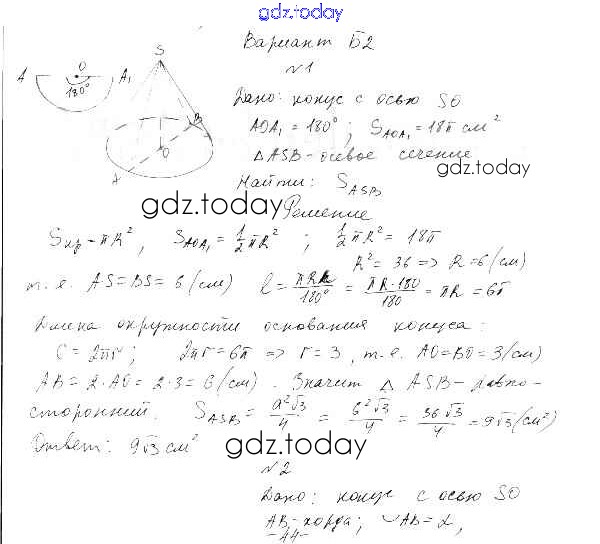 gdz.today
Вариант Б2
№1
Дано: конус с осью SO
AOA₁ = 180°; S_AOA₁ = 18π см²
△ASB – осевое сечение
gdz.today
Найти: S_ASB
gdz.today
Решение
S_кр = πR², S_AOA₁ = 1/2 πR²; 1/2 πR² = 18π
R² = 36 => R = 6 (см)
т. е. AS = BS = 6 (см) ℓ = πRα/180° = πR·180/180 = πR = 6π
Длина окружности основания конуса:
C = 2πr; 2πr = 6π => r = 3, т. е. AO = BO = 3 (см)
AB = 2·AO = 2·3 = 6 (см). Значит △ ASB – равно-
сторонний. S_ASB = a²√3/4 = 6²√3/4 = 36√3/4 = 9√3 (см²)
Ответ: 9√3 см²
gdz.today
№2
Дано: конус с осью SO
AB – хорда; ◡AB = α,
-44-
A O A₁
180°
S
B
O
A